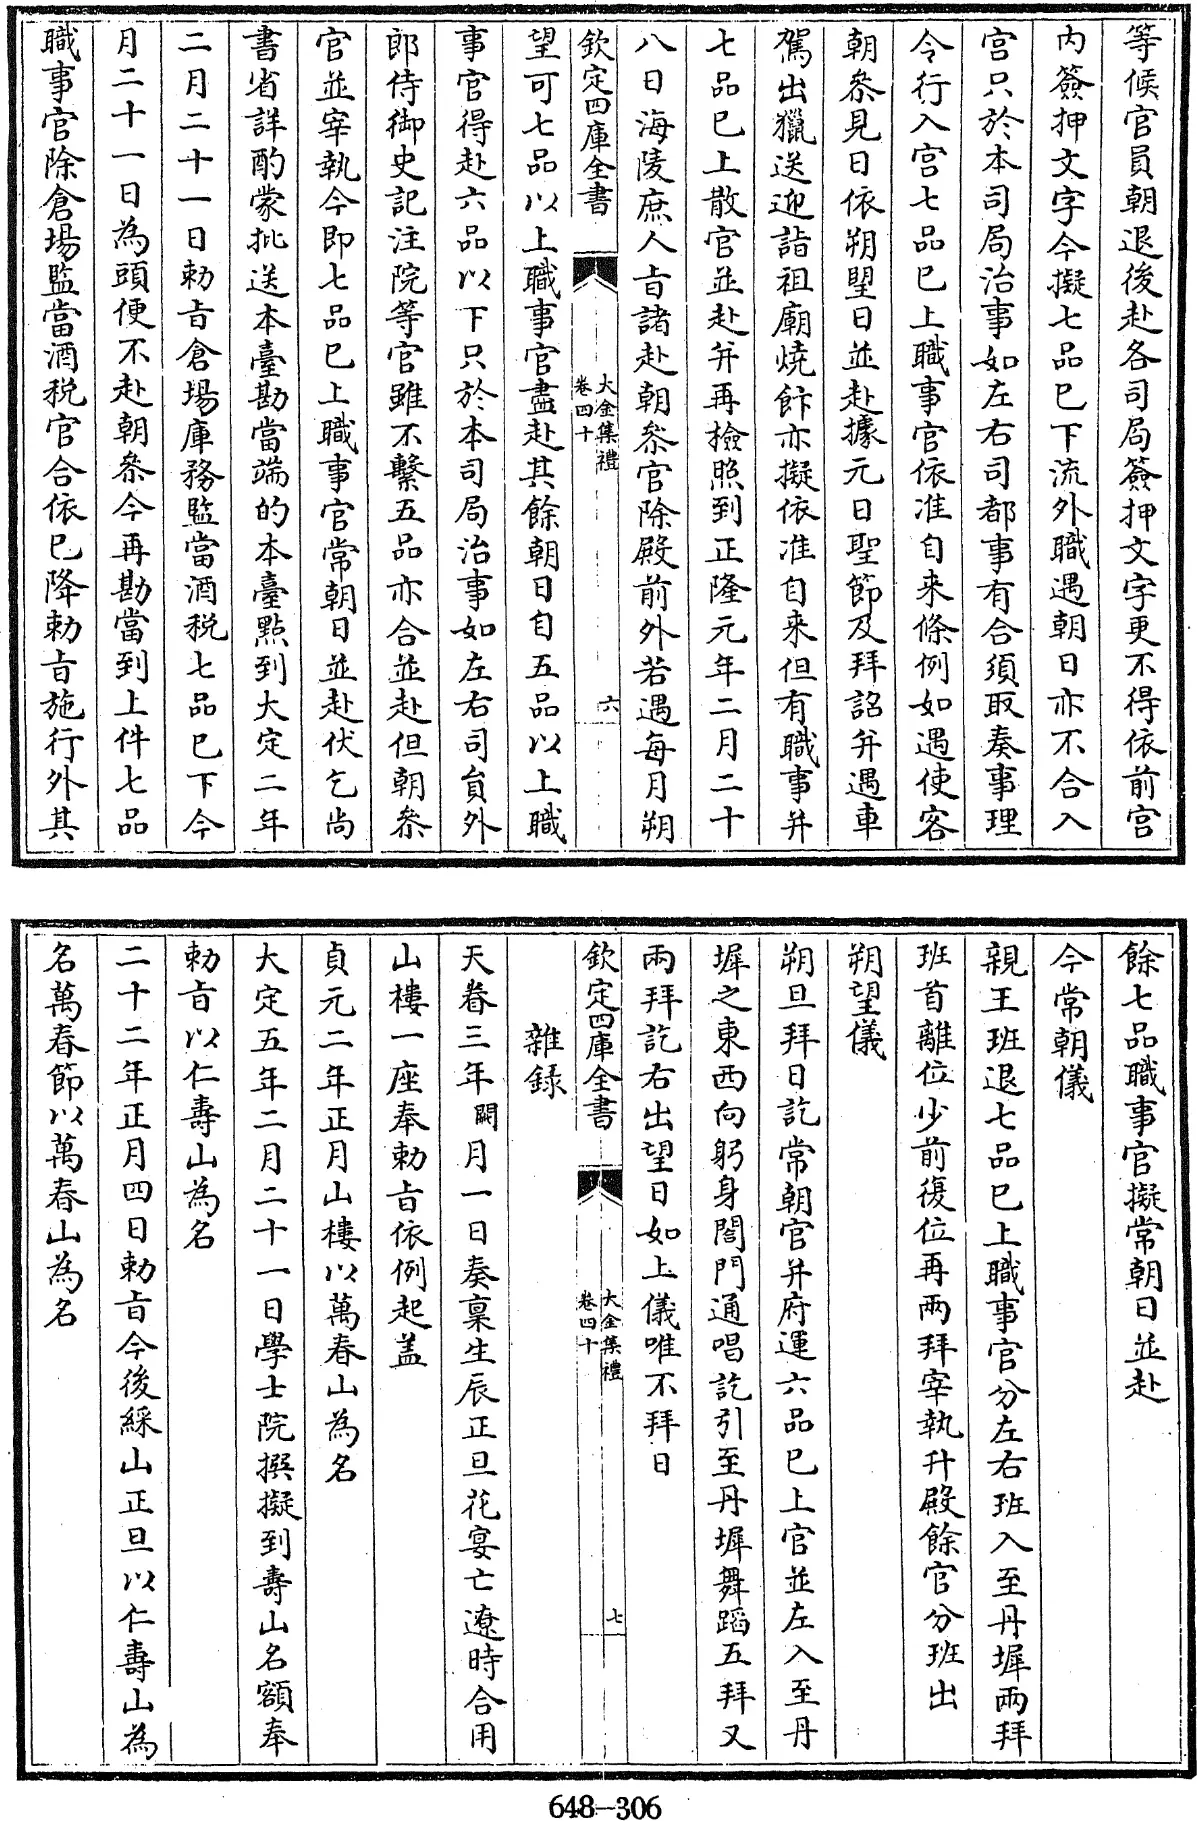 等候官員朝退後赴各司局簽押文字更不得依前宫
内簽押文字今擬七品已下流外職遇朝日亦不合入
宫只於本司局治事如左右司都事有合須取奏事理
令行入宫七品已上職事官依准自来條例如遇使客
朝叅見日依朔望日並赴據元日聖節及拜詔并遇車
駕出獵送迎詣祖廟燒飰亦擬依准自来但有職事并
七品已上散官並赴并再撿照到正隆元年二月二十
八日海陵庶人旨諸赴朝叅官除殿前外若遇每月朔
欽定四庫全書
大金集禮
卷四十
六
望可七品以上職事官盡赴其餘朝日自五品以上職
事官得赴六品以下只於本司局治事如左右司貟外
郎侍御史記注院等官雖不繫五品亦合並赴但朝叅
官並宰執今即七品已上職事官常朝日並赴伏乞尚
書省詳酌蒙批送本臺勘當端的本臺㸃到大定二年
二月二十一日勅旨倉場庫務監當酒税七品已下今
月二十一日為頭便不赴朝叅今再勘當到上件七品
職事官除倉場監當酒税官合依已降勅旨施行外其
餘七品職事官擬常朝日並赴
今常朝儀
親王班退七品已上職事官分左右班入至丹墀兩拜
班首離位少前復位再兩拜宰執升殿餘官分班出
朔望儀
朔旦拜日訖常朝官并府運六品已上官並左入至丹
墀之東西向躬身閤門通唱訖引至丹墀舞蹈五拜又
兩拜訖右出望日如上儀唯不拜日
欽定四庫全書
大金集禮
卷四十
七
雜録
天眷三年闕月一日奏稟生辰正旦花宴亡遼時合用
山樓一座奉勅旨依例起盖
貞元二年正月山樓以萬春山為名
大定五年二月二十一日學士院撰擬到壽山名額奉
勅旨以仁壽山為名
二十二年正月四日勅旨今後綵山正旦以仁壽山為
名萬春節以萬春山為名
648-306